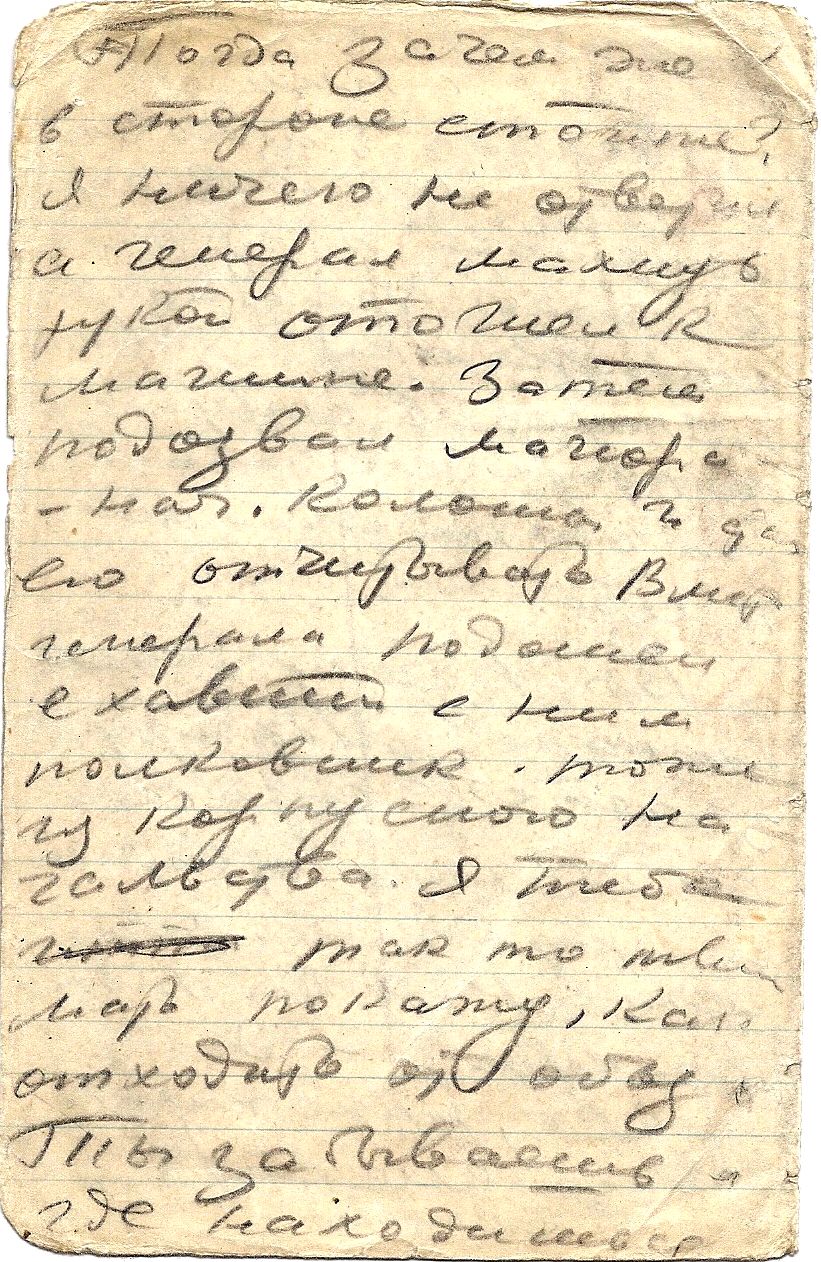 Тогда зачем же
в стороне стоите?
Я ничего не ответил
а генерал махнув
рукой отошел к
машине. Затем
подозвал майора
- нач. колонны и
его отчитывать Вмест
генерала подошел
ехавший с ним
полковник. тоже
из корпусного на
чальства. Я тебе
так то твою
мать покажу, как
отходить от
Ты забываешь
где находишься